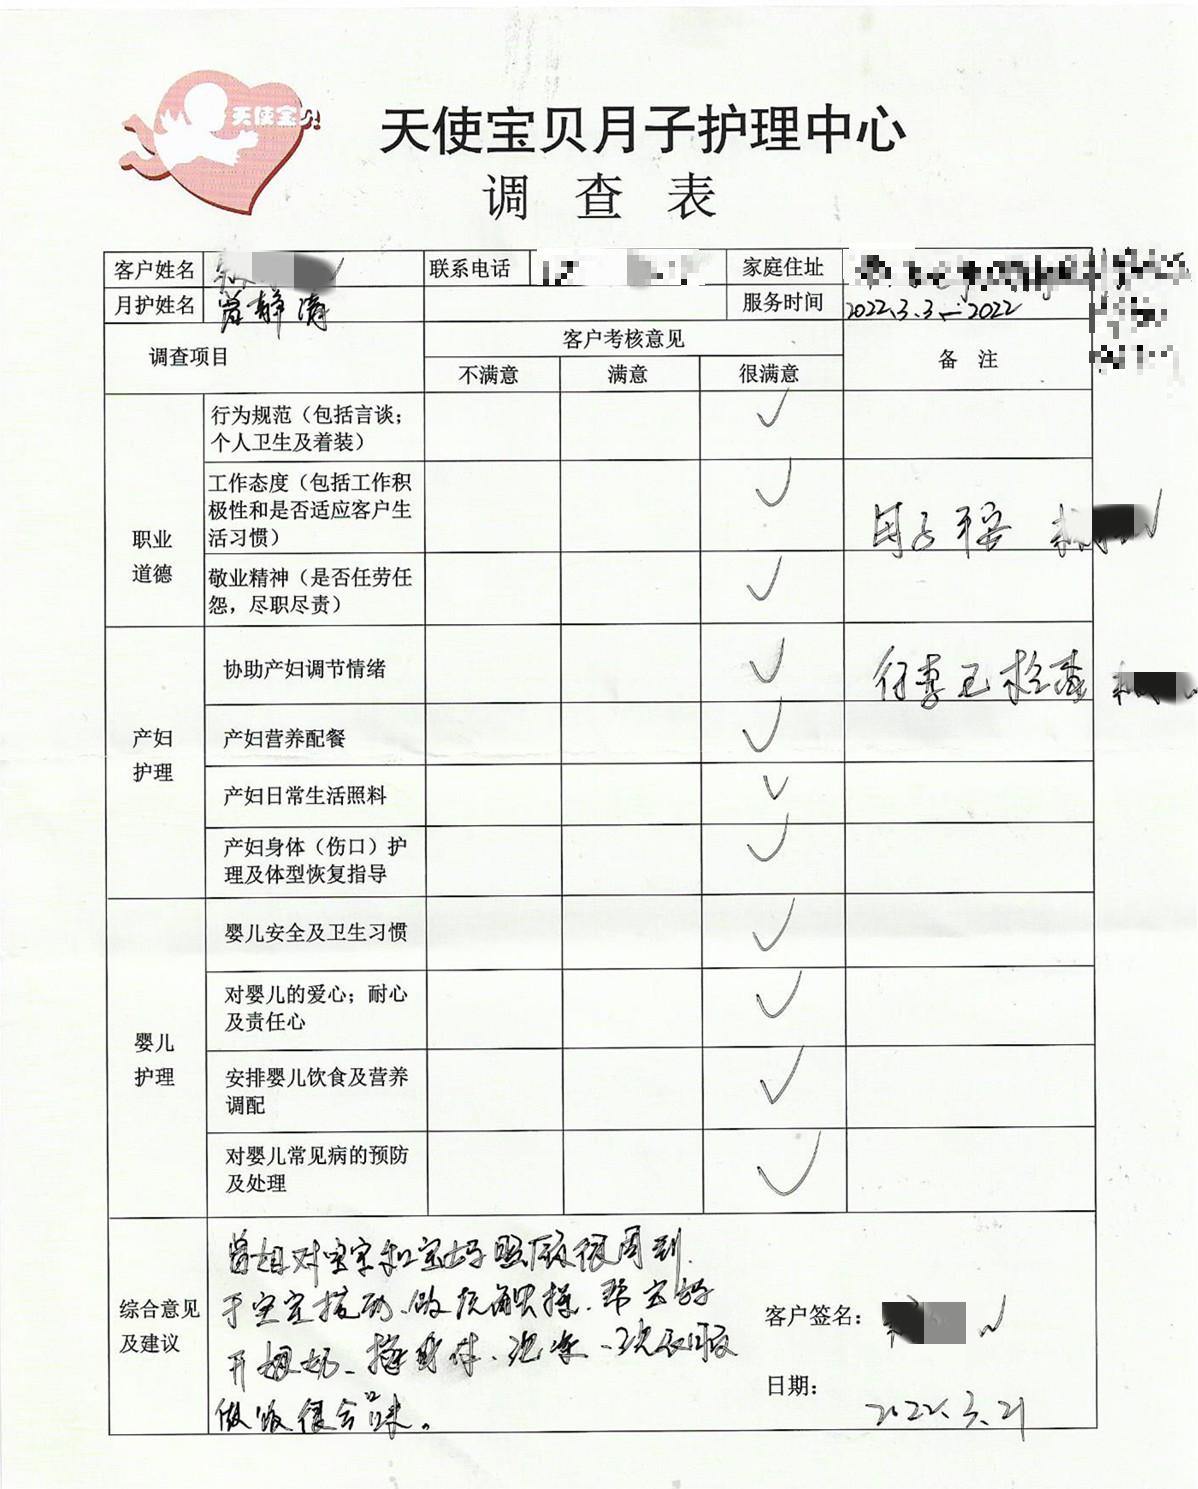 天使宝贝
天使宝贝月子护理中心
调查表
客户姓名
联系电话
家庭住址
月护姓名 曾静涛
服务时间 2022.3.3-2022
调查项目
客户考核意见
备 注
不满意 满意 很满意
职业
道德
行为规范（包括言谈；
个人卫生及着装）
工作态度（包括工作积
极性和是否适应客户生
活习惯）
母子平安
敬业精神（是否任劳任
怨，尽职尽责）
产妇
护理
协助产妇调节情绪
行李已检查
产妇营养配餐
产妇日常生活照料
产妇身体（伤口）护
理及体型恢复指导
婴儿
护理
婴儿安全及卫生习惯
对婴儿的爱心；耐心
及责任心
安排婴儿饮食及营养
调配
对婴儿常见病的预防
及处理
综合意见
及建议
曾姐对宝宝和宝妈照顾很周到
宝宝 做 触 操、帮宝妈
开 奶、擦身体、泡 、洗衣服
做饭很合口味。
客户签名：
日期：
2022.3.21